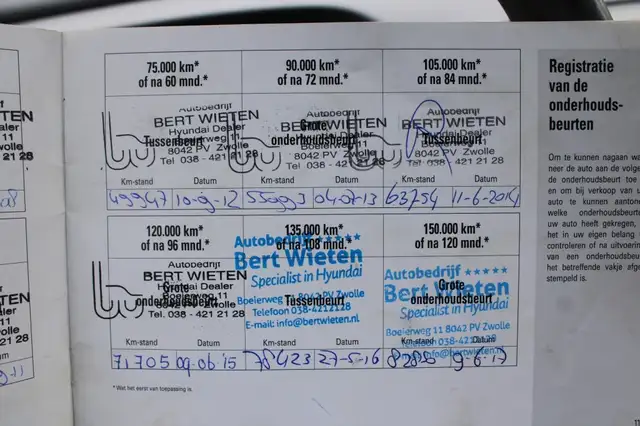 75.000 km*
of na 60 mnd.*
Autobedrijf
BERT WIETEN
Hyundai Dealer
Tussenbeurt
8042 PV Zwolle
Tel. 038 - 421 21 28
Km-stand Datum
49947 10-9-12
90.000 km*
of na 72 mnd.*
Autobedrijf
BERT WIETEN
Grote
onderhoudsbeurt
8042 PV Zwolle
Tel. 038 - 421 21 28
Km-stand Datum
55993 04-07-13
105.000 km*
of na 84 mnd.*
Autobedrijf
BERT WIETEN
Hyundai Dealer
Tussenbeurt
8042 PV Zwolle
Tel. 038 - 421 21 28
Km-stand Datum
63754 11-6-2014
120.000 km*
of na 96 mnd.*
Autobedrijf
BERT WIETEN
Grote
onderhoudsbeurt
Tel. 038 - 421 21 28
Km-stand Datum
71705 09-06-'15
135.000 km*
of na 108 mnd.*
Autobedrijf
Bert Wieten
Specialist in Hyundai
Boeierweg 11 8042 PV Zwolle
Tussenbeurt
Telefoon 038-4212128
E-mail: info@bertwieten.nl
Km-stand Datum
78423 27-5-16
150.000 km*
of na 120 mnd.*
Autobedrijf
Bert Wieten
Grote
onderhoudsbeurt
Specialist in Hyundai
Boeierweg 11 8042 PV Zwolle
Telefoon 038-4212128
info@bertwieten.nl
Km-stand Datum
9-6-17
* Wat het eerst van toepassing is.
Registratie
van de
onderhouds-
beurten
Om te kunnen nagaan wa
neer de auto aan de volge
de onderhoudsbeurt toe
en om bij verkoop van u
auto te kunnen aantone
welke onderhoudsbeurt
uw auto heeft gekregen,
het in uw eigen belang
controleren of na uitvoerin
van een onderhoudsbeu
het betreffende vakje afge
stempeld is.